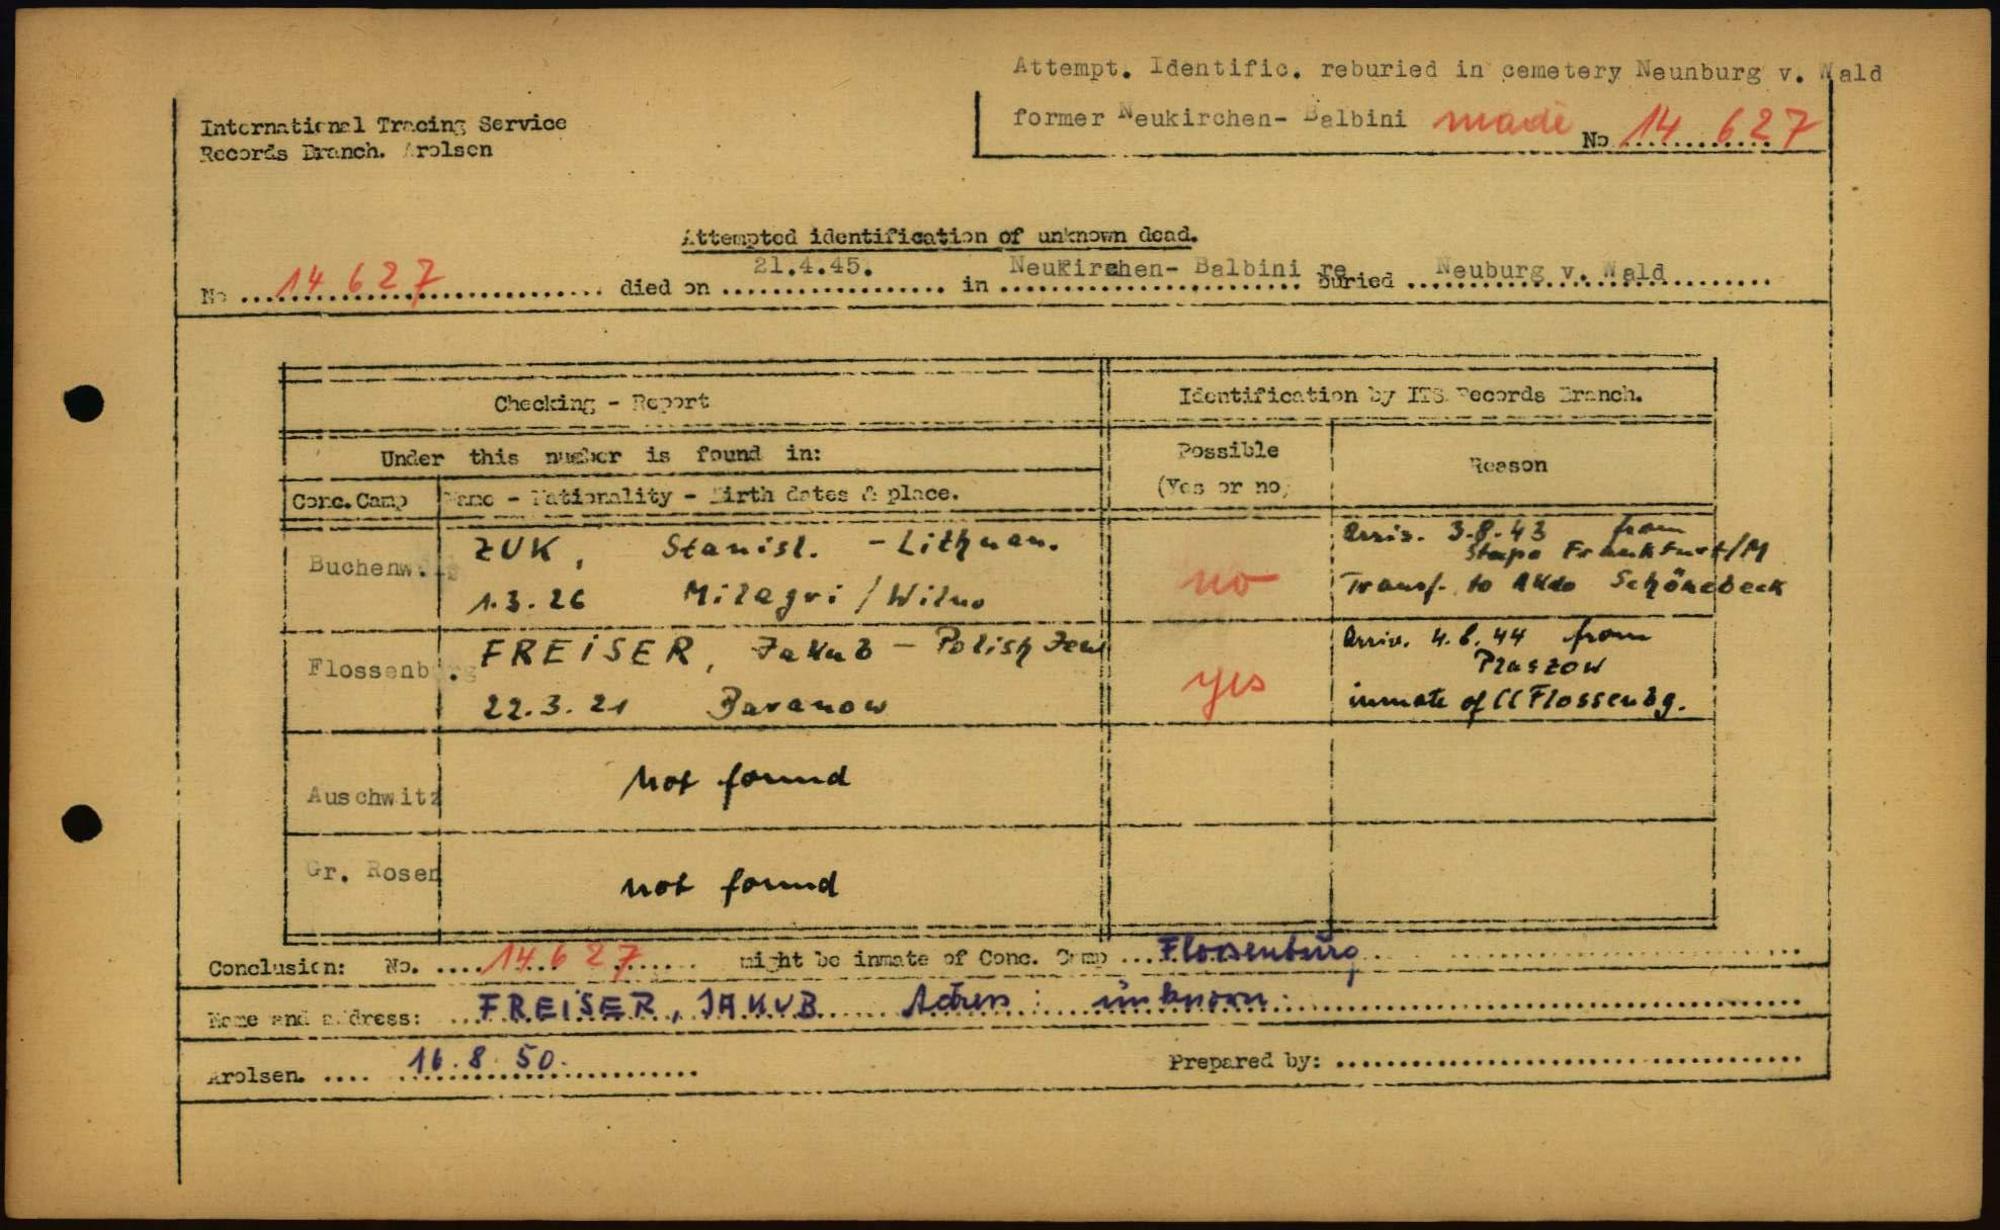 Attempt. Identific. reburied in cemetery Neunburg v. Wald
former Neukirchen- Balbini made No 14 627
International Tracing Service
Records Branch. Arolsen
Attempted identification of unknown dead.
No 14 627 died on 21.4.45. in Neukirchen- Balbini re buried Neuburg v. Wald
Checking - Report
Identification by ITS Records Branch.
Under this number is found in:
Possible
(Yes or no)
Reason
Conc. Camp
Name - Nationality - Birth dates & place.
Buchenw.
ZUK, Stanisl. - Lithuan.
1.3.26 Milegri / Wilno
no
Arriv. 3.8.43 from
Stapo Frankfurt/M
Transf. to AKdo Schönebeck
Flossenb.
FREISER, Jakub - Polish Jew
22.3.21 Baranow
yes
Arriv. 4.8.44 from
Plaszow
inmate of CC Flossenbg.
Auschwitz
not found
Gr. Rosen
not found
Conclusion: No. 14 627 might be inmate of Conc. Camp Flossenbürg
Name and address: FREISER, JAKUB Adress: unknown.
Arolsen. 16.8.50.
Prepared by: